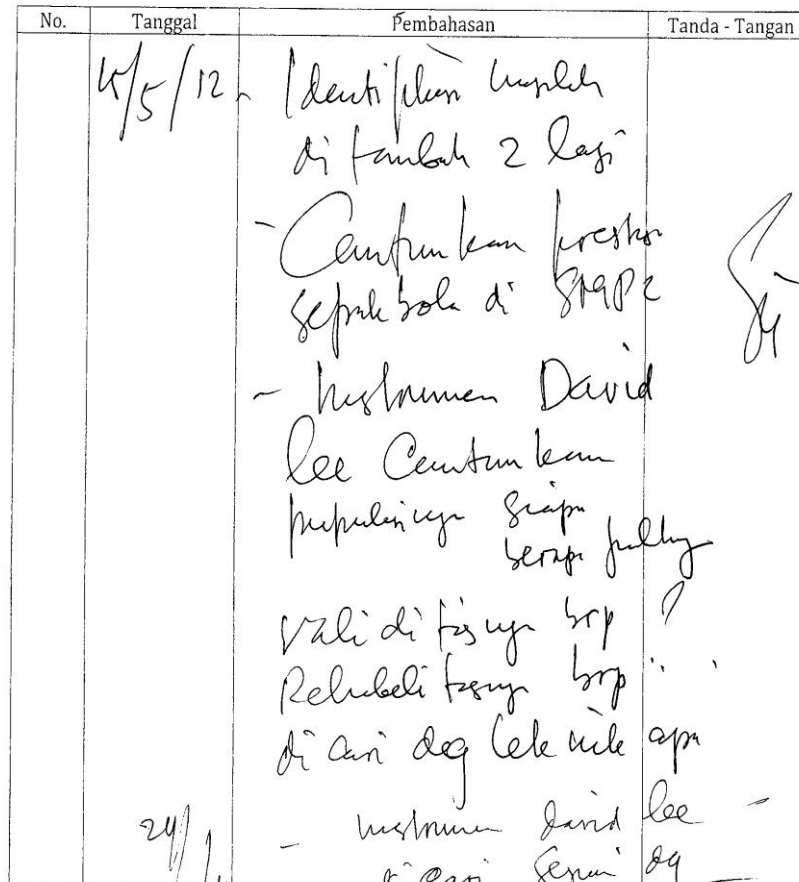 No. Tanggal Pembahasan Tanda - Tangan
15/5/12 - Identifikasi masalah
di tambah 2 lagi
- Cantumkan prestasi
sepak bola di SMAN 2
- Instrumen David
Lee Cantumkan
populasinya siapa
berapa jmlhnya
Validitasnya brp ?
Reliabelitasnya brp "
di cari deg teknik apa
24/
- Instrumen david lee -
di cari sesuai dg